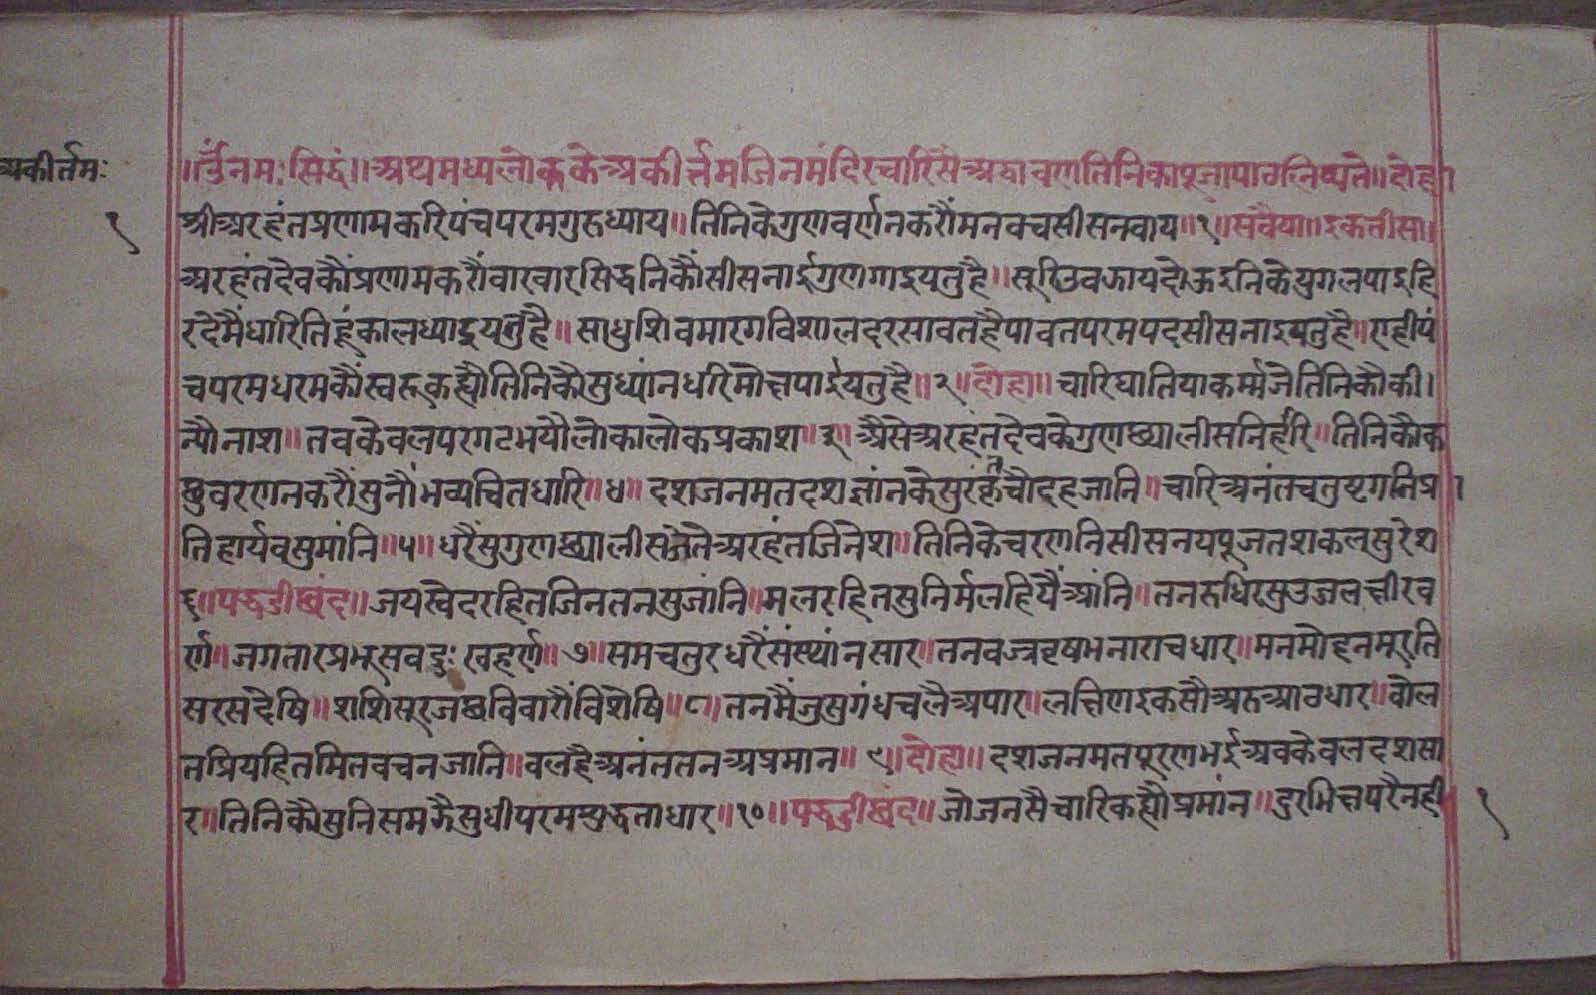 अकीर्तमः
१
॥र्उँनमःसिद्धं॥अथमध्यलोकके अकीर्त्तमजिनमंदिरचारिसैअठावणतिनिकापूजापाठलिष्यते॥दोहा
श्रीअरहंतप्रणामकरिपंचपरमगुरुध्याय॥तिनिकेगुणवर्णनकरौंमनवचसीसनवाय॥१॥सवैया॥इकतीसा॥
अरहंतदेवकौंप्रणामकरौंवारवारसिद्धनिकौंसीसनाईगुणगाइयतुहै॥सूरिउवझायदोऊइनिकेयुगलपाइहि
रदेमैंधारितिहूंकालध्याइयतुहै॥साधुशिवमारगविशालदरसावतहैपावतपरमपदसीसनाइयतुहै॥एहीपं
चपरमधरमकौंस्वरूकह्यौतिनिकौसुध्यांनधरिमोक्षपाईयतुहै॥२॥दोहा॥चारिघातियाकर्म्मजेतिनिकौकी।
न्यौनाश॥तवकेवलपरगटभयौलोकालोकप्रकाश॥३॥अैसेअरहंतदेवकेगुणछ्यालीसनिर्हारि॥तिनिकौक
छुवरणनकरौंसुनौंभव्यचितधारि॥४॥दशजनमतदशज्ञांनकेसुरकृतचौदहजानि॥चारिअनंतचतुष्टगनिप्रा
तिहार्यवसुमांनि॥५॥धरैंसुगुणछ्यालीसजेतेअरहंतजिनेश॥तिनिकेचरणनिसीसनयपूजतशकलसुरेश
६॥पद्धडीछंद॥जयस्वेदरहितजिनतनसुजांनि॥मलरहितसुनिर्मलहियैंआंनि॥तनरुधिरसुउजलक्षीरव
र्ण॥जगतारप्रभूसवदुःखहर्ण॥७॥समचतुरधरैंसंस्थांनसार॥तनवज्रवृषभनाराचधार॥मनमोहनमूरति
सरसदेषि॥शशिसूरजछविवारौंविशेषि॥८॥तनमैंजुसुगंधचलैअपार॥लक्षिणइकसौअरुआठधार॥वोल
तप्रियहितमितवचनजानि॥वलहैअनंततनअप्रमान॥९॥दोहा॥दशजनमतपूरणभईअवकेवलदशसा
र॥तिनिकौसुनिसमझैसुधीपरमशुद्धताधार॥१०॥पद्धडीछंद॥जोजनसैचारिकह्यौप्रमांन॥दुरभिक्षपरैनही
१